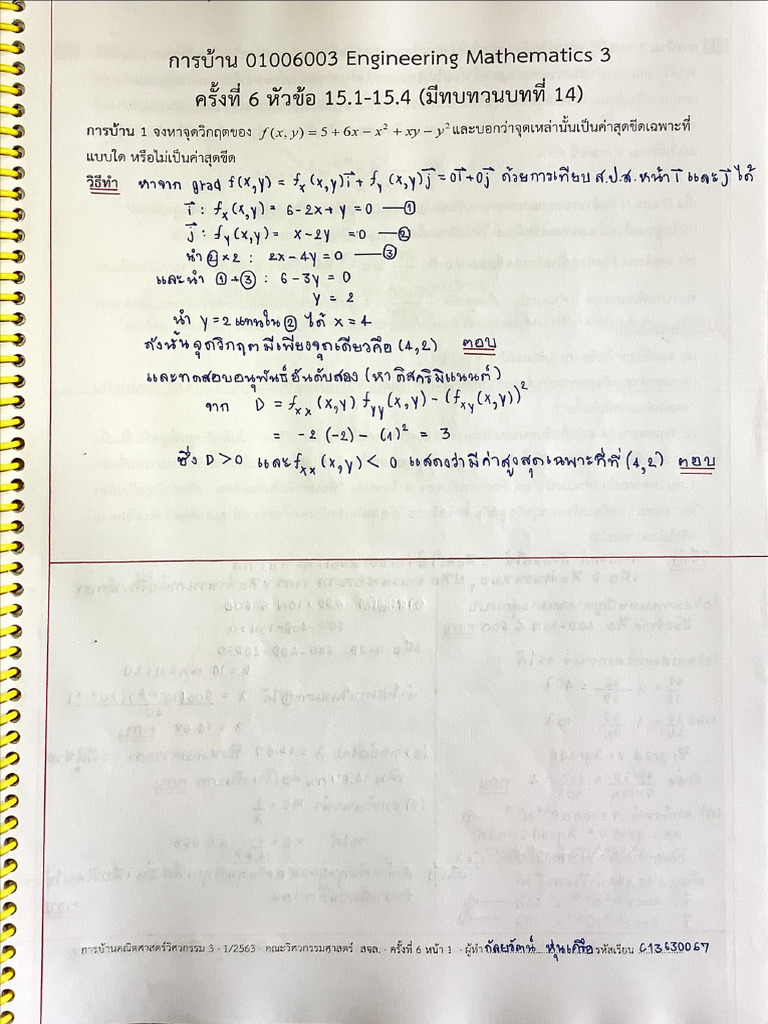 การบ้าน 01006003 Engineering Mathematics 3
ครั้งที่ 6 หัวข้อ 15.1-15.4 (มีทบทวนบทที่ 14)
การบ้าน 1 จงหาจุดวิกฤตของ f(x, y) = 5 + 6x − x² + xy − y² และบอกว่าจุดเหล่านั้นเป็นค่าสุดขีดเฉพาะที่
แบบใด หรือไม่เป็นค่าสุดขีด
วิธีทำ หาจาก grad f(x,y) = fₓ(x,y)i⃗ + f_y(x,y)j⃗ = 0i⃗ + 0j⃗ ด้วยการเทียบ ส.ป.ส. หน้า i⃗ และ j⃗ ได้
i⃗ : fₓ(x,y) = 6-2x+y = 0 —①
j⃗ : f_y(x,y) = x-2y = 0 —②
นำ ②×2 : 2x-4y = 0 —③
และนำ ①+③ : 6-3y = 0
y = 2
นำ y=2 แทนใน ② ได้ x=4
ดังนั้นจุดวิกฤตมีเพียงจุดเดียวคือ (4,2) ตอบ
และทดสอบอนุพันธ์อันดับสอง (หาดิสคริมิแนนต์)
จาก D = fₓₓ(x,y) f_yy(x,y) - (f_xy(x,y))²
= -2(-2) - (1)² = 3
ซึ่ง D > 0 และ fₓₓ(x,y) < 0 แสดงว่ามีค่าสูงสุดเฉพาะที่ที่ (4,2) ตอบ
การบ้านคณิตศาสตร์วิศวกรรม 3 · 1/2563 · คณะวิศวกรรมศาสตร์ สจล. · ครั้งที่ 6 หน้า 1 · ผู้ทำ กัลยรัตน์ หุ่นเครือ รหัสเรียน C13630067